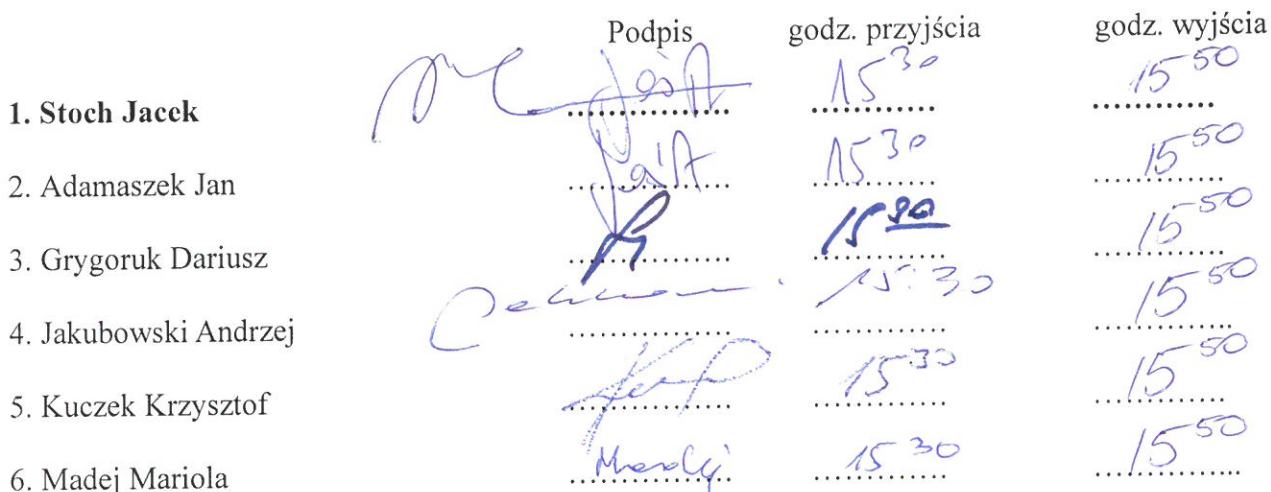 Podpis godz. przyjścia godz. wyjścia
1. Stoch Jacek .............. 15 30 15 50
2. Adamaszek Jan .............. 15 30 15 50
3. Grygoruk Dariusz .............. 15 30 15 50
4. Jakubowski Andrzej .............. 15:30 15 50
5. Kuczek Krzysztof .............. 15 30 15 50
6. Madej Mariola Madej 15 30 15 50